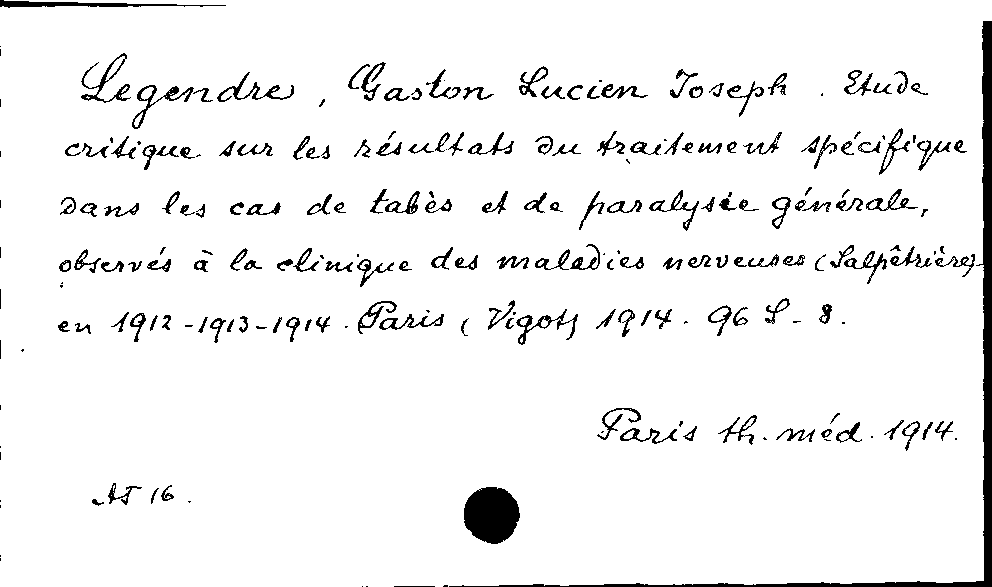 Legendre, Gaston Lucien Joseph. Etude
critique sur les résultats du traitement spécifique
dans les cas de tabès et de paralysie générale,
observés à la clinique des maladies nerveuses (Salpêtrière)
en 1912-1913-1914. Paris (Vigot) 1914. 96 S - 8.
Paris th. méd. 1914.
AT 16.